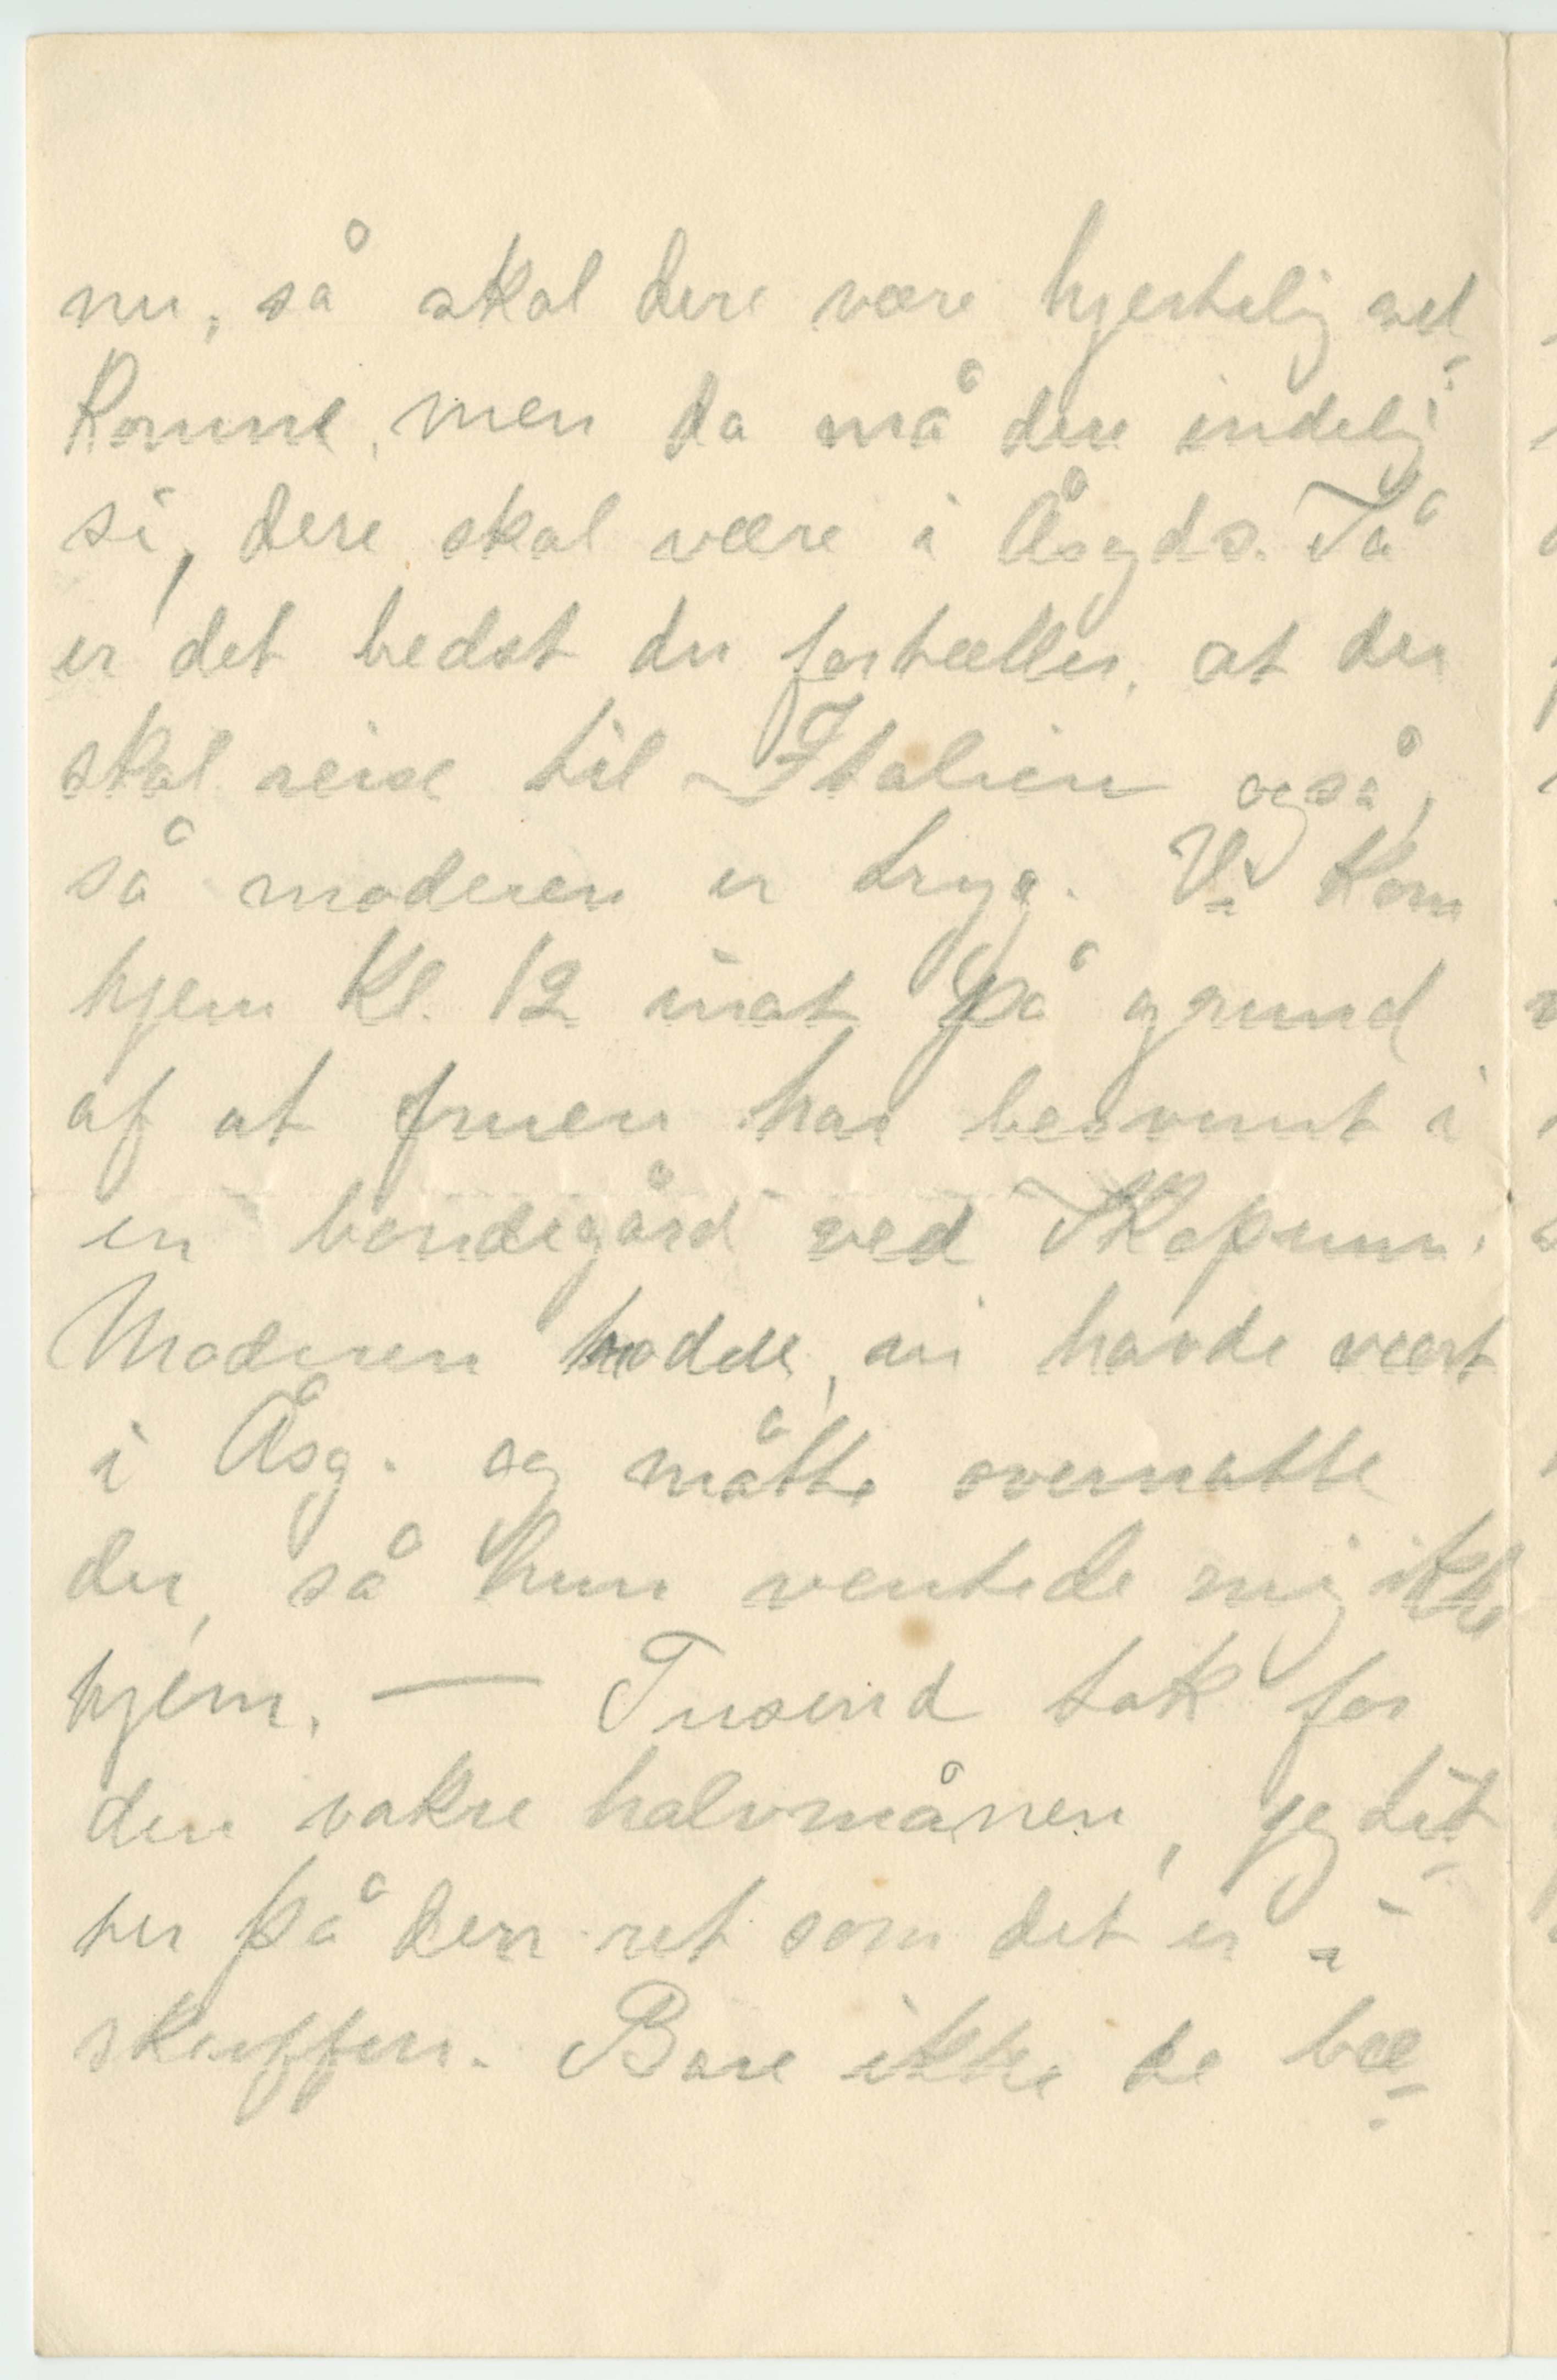 nu, så skal dere være hjertelig vel-
komne, men da må dere indelig
si, dere skal være i Åsgds. Så
er det bedst du fortæller, at du
skal reise til Italien også,
så moderen er tryg. Vi kom
hjem kl. 12 inat på grund
af at fruen har besvimt i
en bondegård ved
Moderen trodde, vi havde vært
i Åsg. og måtte overnatte
der, så hun ventede mig ikke
hjem. — Tusend tak for
den vakre halvmånen, jeg tit-
ter på den ret som det er i
skuffen. Bare ikke de bæ-